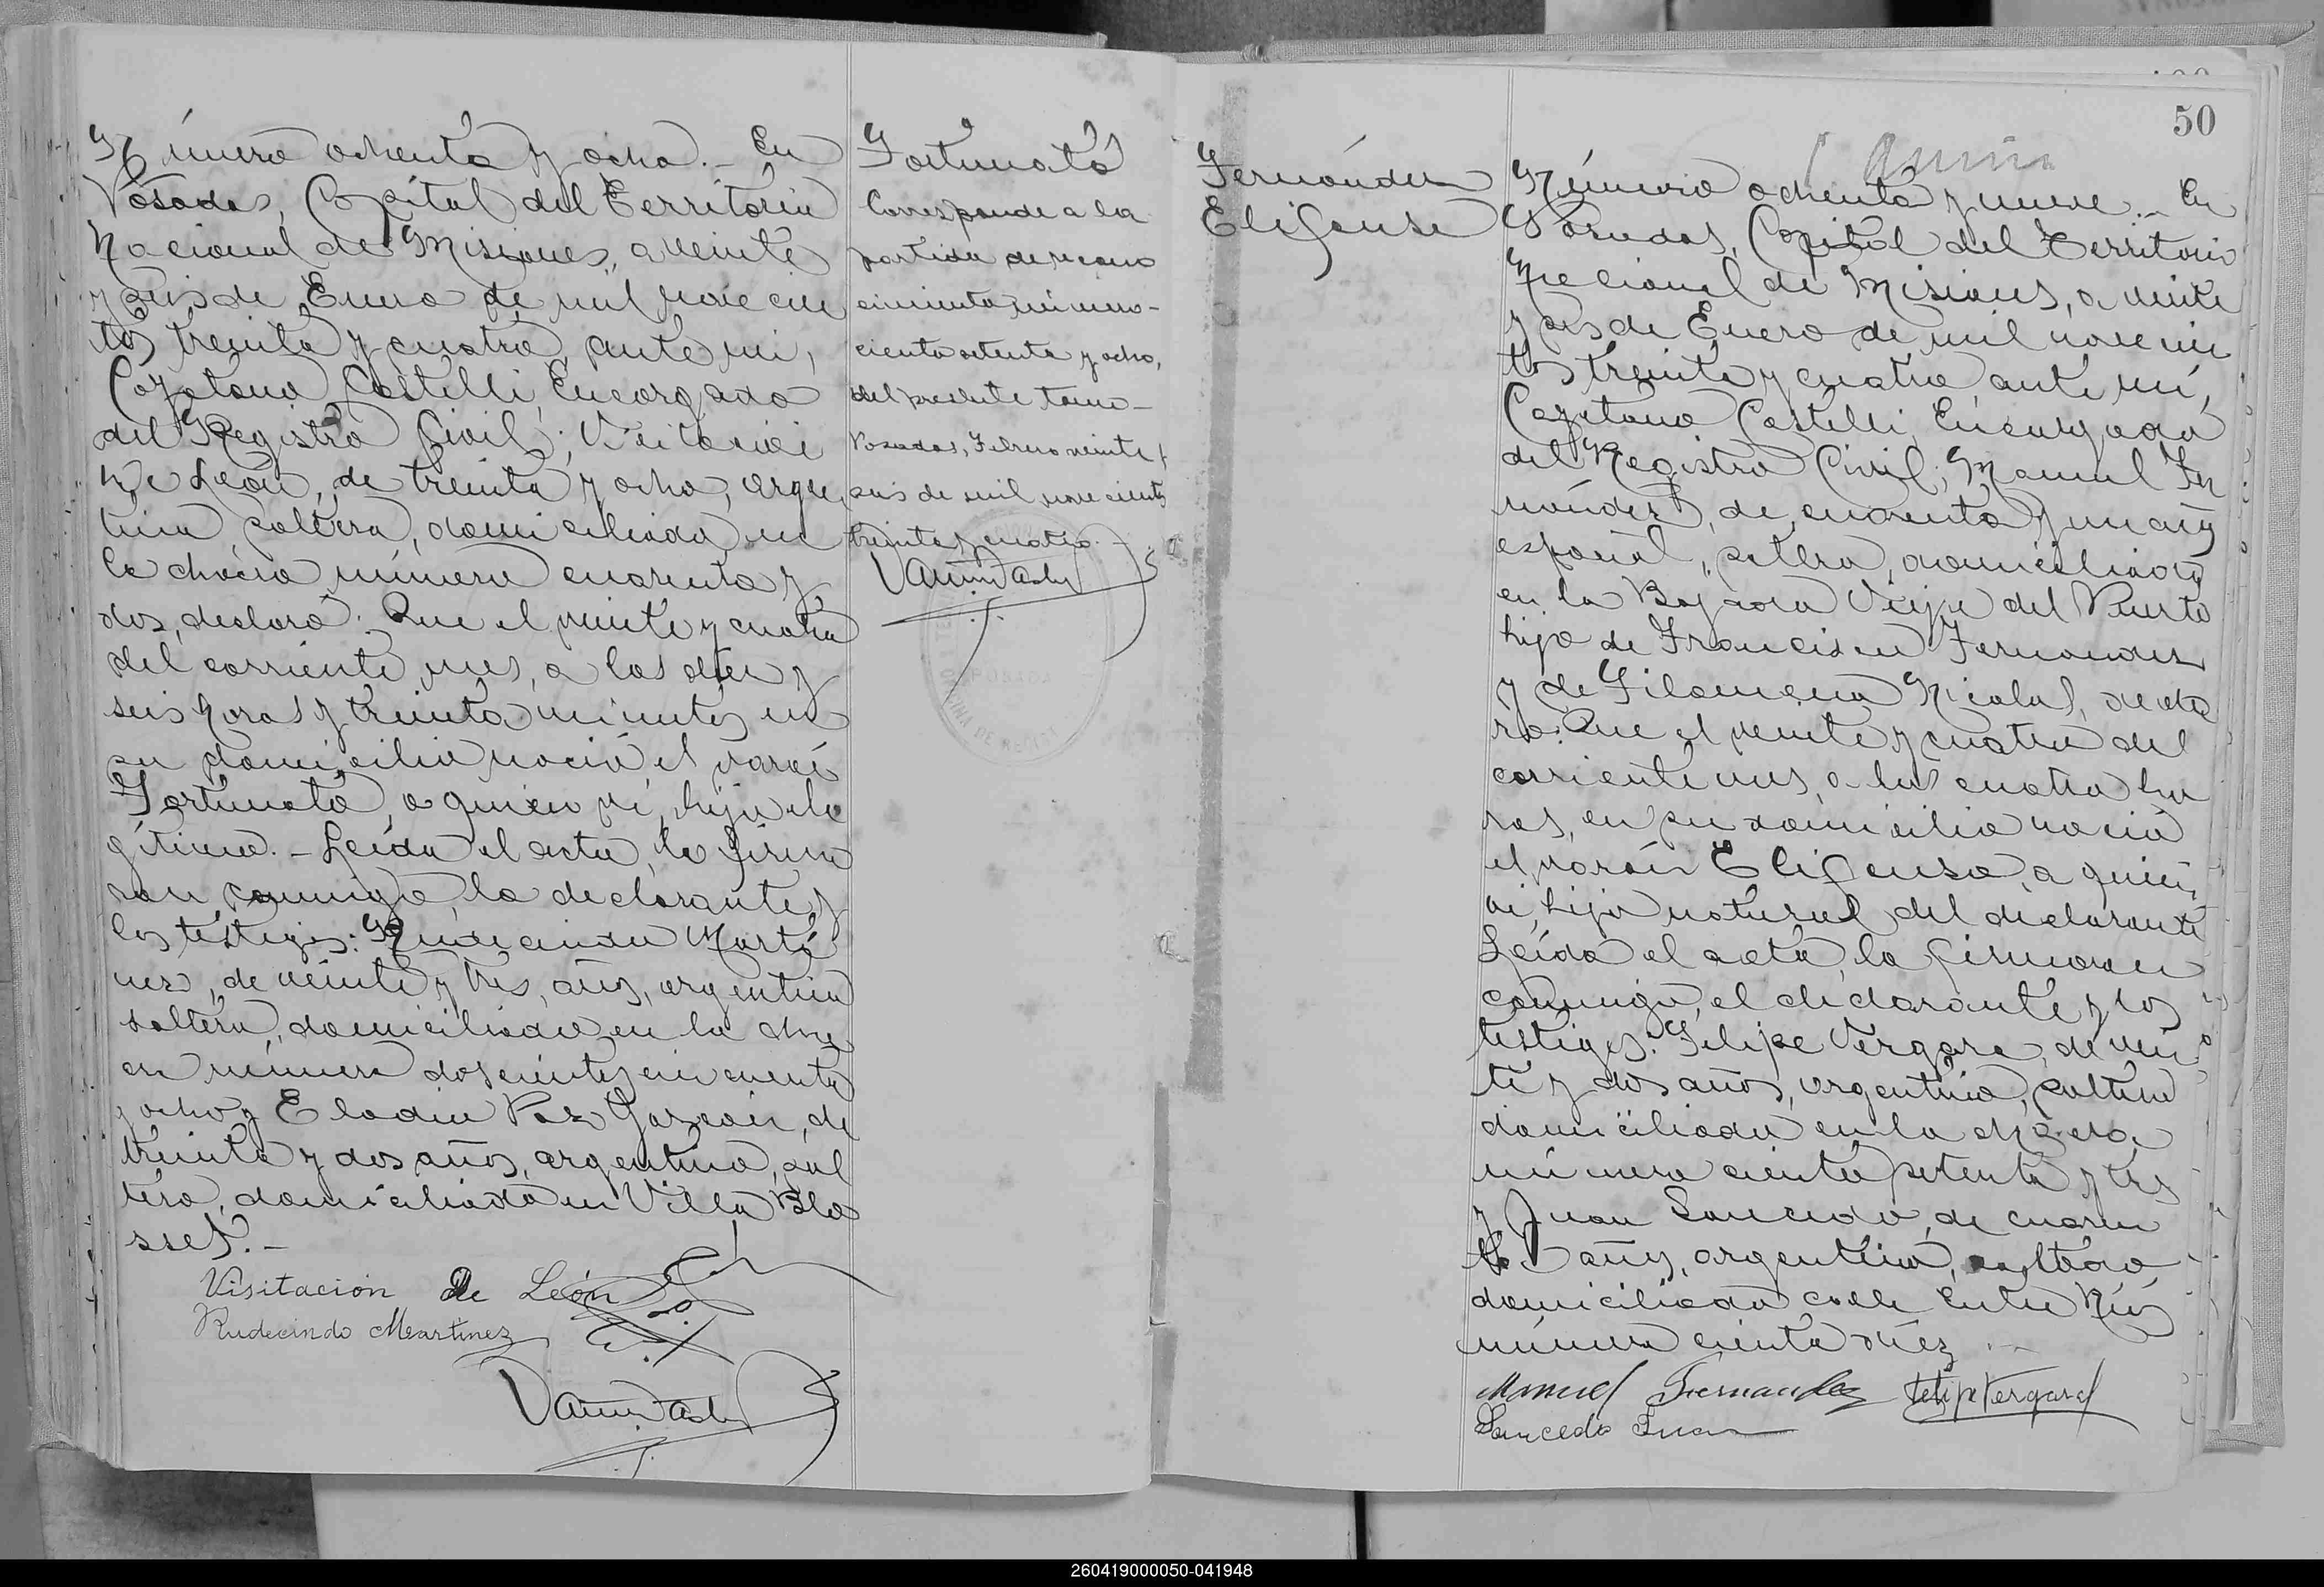 Número ochenta y ocho.- En
Posadas, Capital del Territorio
Nacional de Misiones, a veinte
y seis de Enero de mil novecien
tos treinta y cuatro, ante mi,
Cayetano Castelli, Encargado
del Registro Civil;
De León, de treinta y ocho, argen
tina, soltera, domiciliada en
la chacra número cuarenta y
dos, declaró: Que el veinte y cuatro
del corriente mes, a las diez y
seis horas y treinta minutos en
su domicilio nació el varón
Fortunato, a quien vi, hijo ile
gítimo.- Leída el acta, la firma
ron conmigo, la declarante y
los testigos: Rudecindo Martí
nez, de veinte y tres, años, argentino
soltero, domiciliado en la cha
cra número doscientos cincuenta
y ocho y Eladio Paz Garzón, de
treinta y dos años, argentino, sol
tero, domiciliado en Villa Blo
sset.-
Visitación De León
Rudecindo Martinez
Fortunato
Corresponde a la
partida de recono
cimiento número-
ciento setenta y ocho,
del presente tomo-
Posadas, Febrero veinte y
seis de mil novecientos
treinta y cuatro.-
50
Fernández
Elifonso
Número ochenta y nueve.- En
Posadas, Capital del Territorio
Nacional de Misiones, a veinte
y seis de Enero de mil novecien
tos treinta y cuatro, ante mí,
Cayetano Castelli, Encargado
del Registro Civil; Manuel Fer
nández, de cuarenta y un años
español, soltero, domiciliado
en la Bajada Vieja del Puerto
hijo de Francisco Fernandez
y de Filomena Nicolas, decla
ró: Que el veinte y cuatro del
corriente mes, a las cuatro ho
ras, en su domicilio nació
el varón Elifonso, a quien
vi, hijo natural del declarante
Leída el acta, la firmaron
conmigo, el declarante y los
testigos: Felipe Vergara, de vein
te y dos años, argentino, soltero
domiciliado en la chacra
número ciento setenta y tres
y Juan Saucedo, de cuaren
ta años, argentino, soltero,
domiciliado calle Entre Ríos
número ciento diez
Manuel Fernandez Felipe Vergara
Saucedo Juan
260419000050-041948